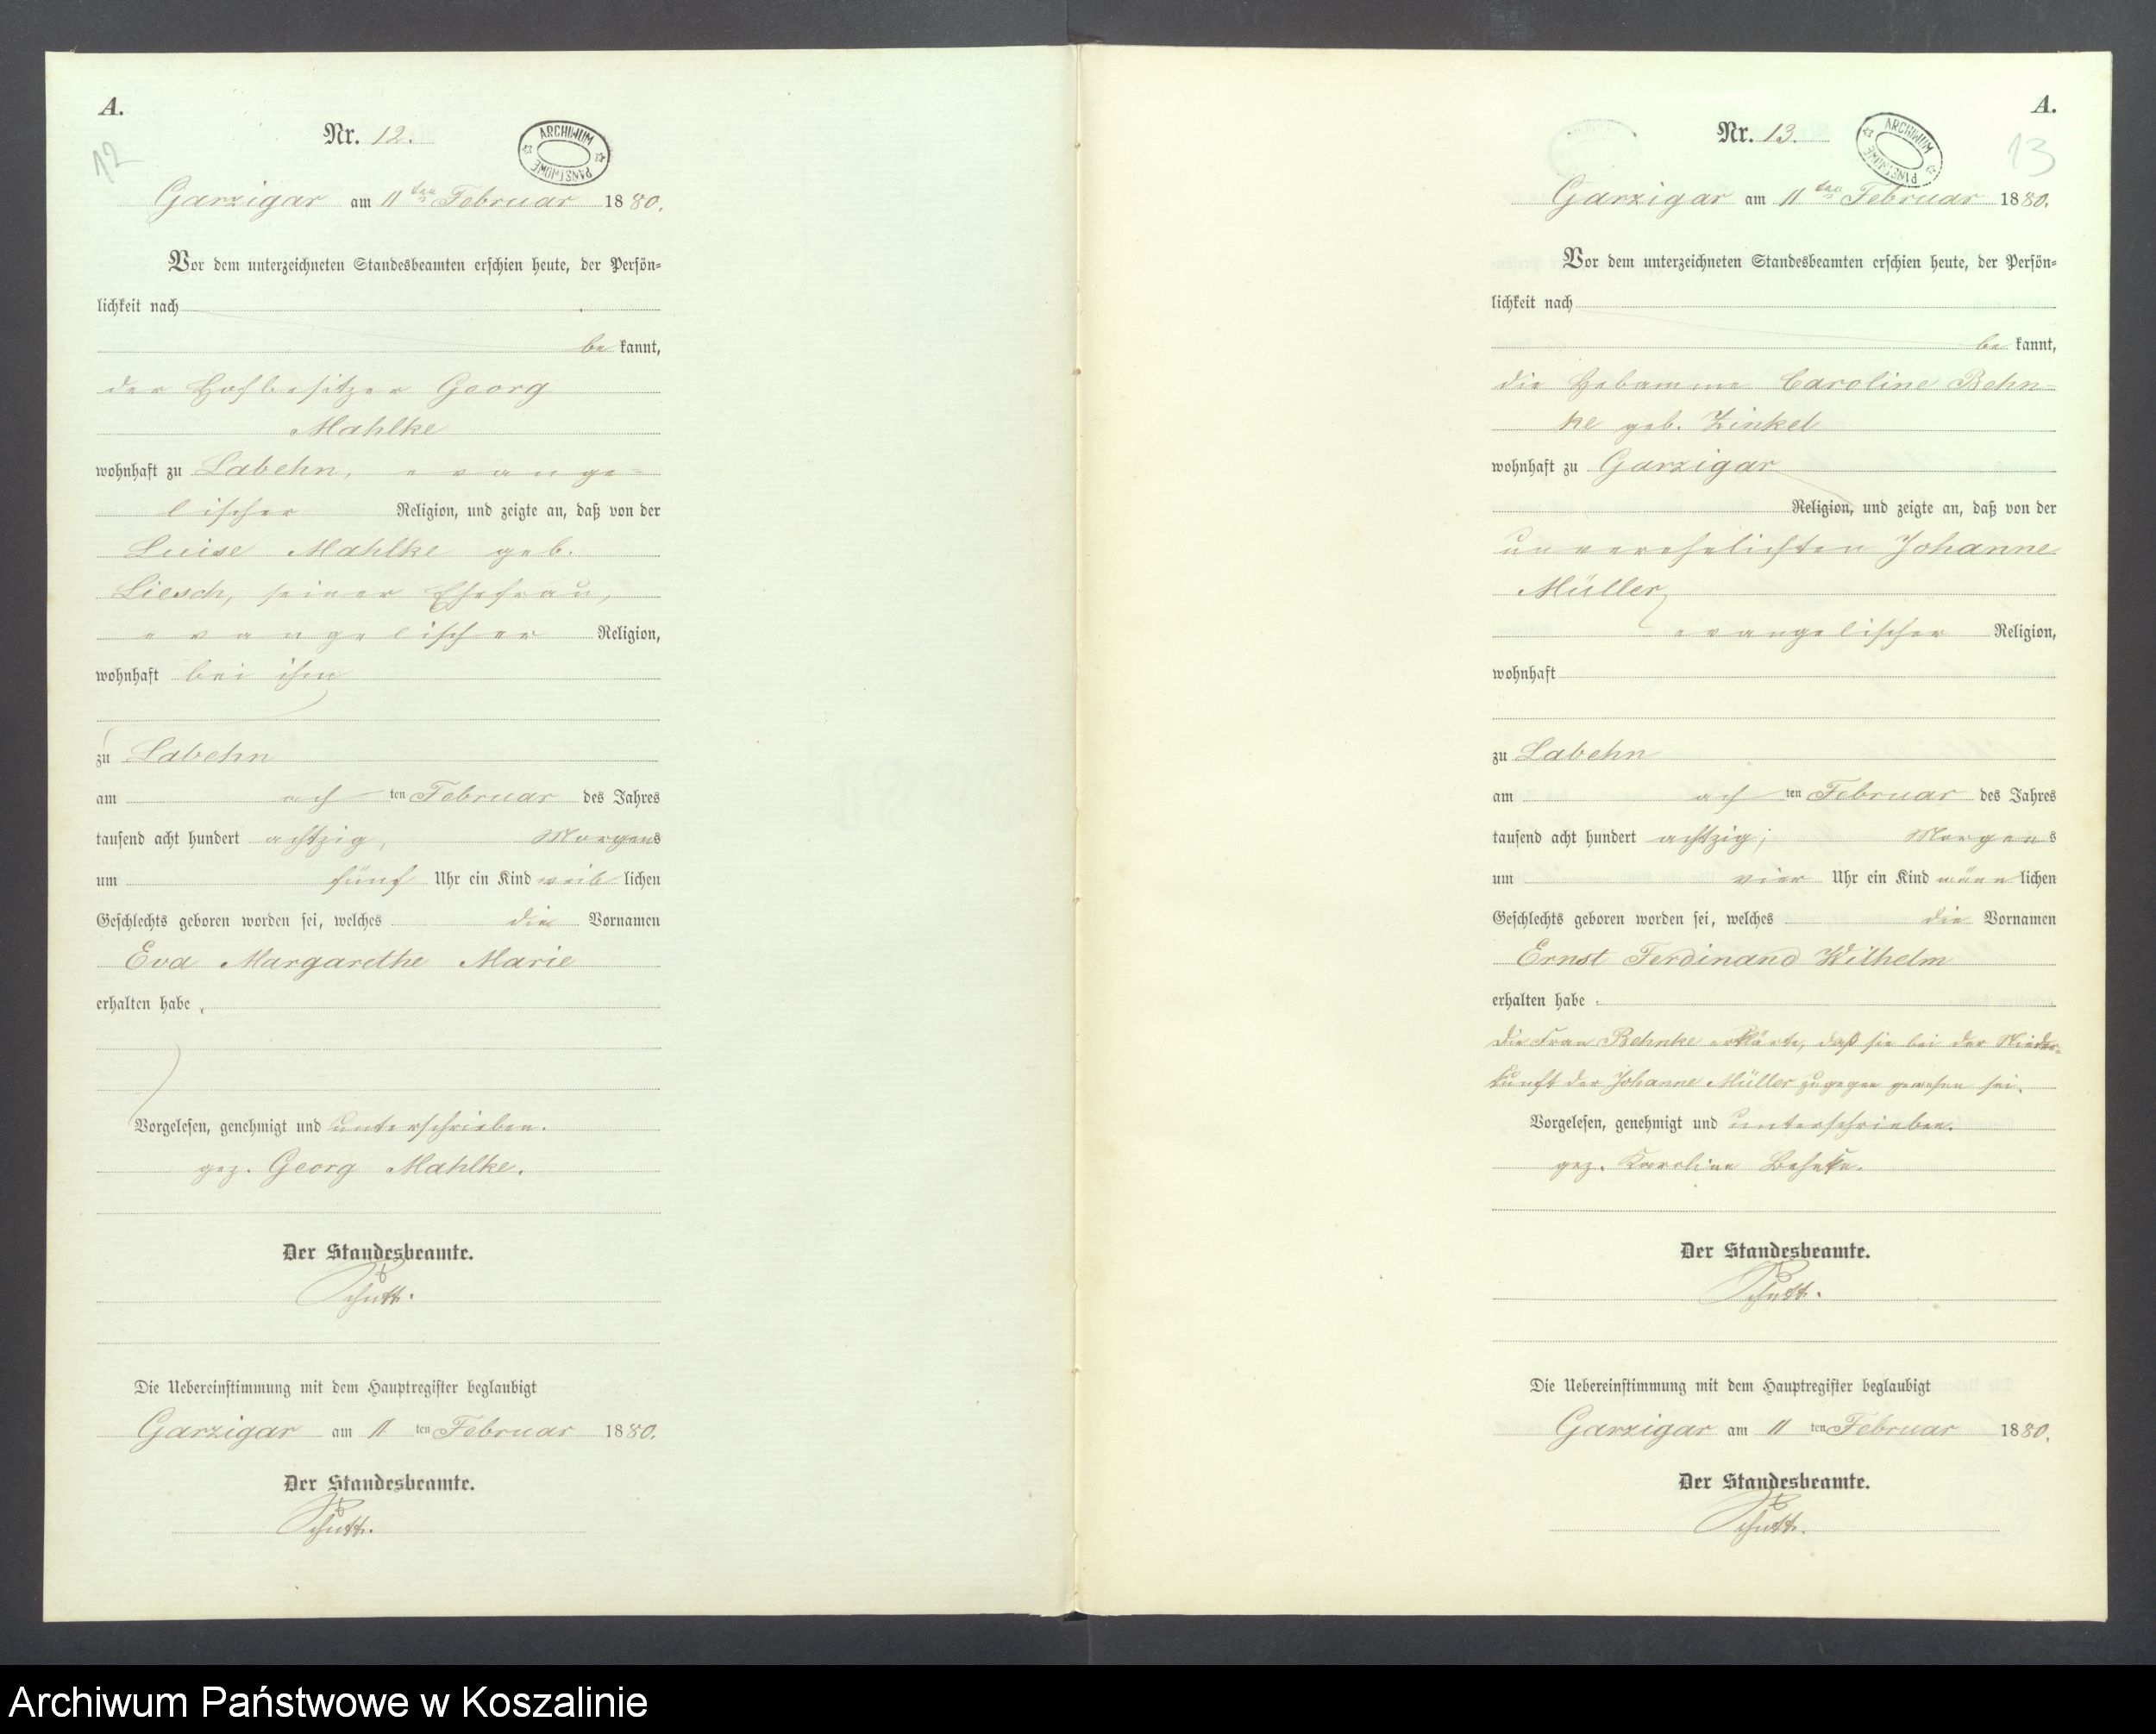 A.
12
Nr. 12.
ARCHIWUM PAŃSTWOWE
Garzigar am 11ten Februar 1880.
Vor dem unterzeichneten Standesbeamten erschien heute, der Persön=
lichkeit nach
be kannt,
der Hofbesitzer Georg
Mahlke
wohnhaft zu Labehn, evange=
lischer Religion, und zeigte an, daß von der
Luise Mahlke geb.
Liesch, seiner Ehefrau,
evangelischer Religion,
wohnhaft bei ihm
zu Labehn
am ach ten Februar des Jahres
tausend acht hundert achtzig, Morgens
um fünf Uhr ein Kind weib lichen
Geschlechts geboren worden sei, welches die Vornamen
Eva Margarethe Marie
erhalten habe.
Vorgelesen, genehmigt und unterschrieben.
gez. Georg Mahlke.
Der Standesbeamte.
Schütt.
Die Uebereinstimmung mit dem Hauptregister beglaubigt
Garzigar am 11 ten Februar 1880.
Der Standesbeamte.
Schütt.
A.
13
Nr. 13.
ARCHIWUM PAŃSTWOWE
Garzigar am 11ten Februar 1880.
Vor dem unterzeichneten Standesbeamten erschien heute, der Persön=
lichkeit nach
be kannt,
die Hebamme Caroline Behn=
ke geb. Zinkel
wohnhaft zu Garzigar
Religion, und zeigte an, daß von der
unverehelichten Johanne
Müller,
evangelischer Religion,
wohnhaft
zu Labehn
am ach ten Februar des Jahres
tausend acht hundert achtzig, Morgens
um vier Uhr ein Kind männ lichen
Geschlechts geboren worden sei, welches die Vornamen
Ernst Ferdinand Wilhelm
erhalten habe.
Die Frau Behnke erklärte, daß sie bei der Nieder=
kunft der Johanne Müller zugegen gewesen sei.
Vorgelesen, genehmigt und unterschrieben.
gez. Karoline Behnke.
Der Standesbeamte.
Schütt.
Die Uebereinstimmung mit dem Hauptregister beglaubigt
Garzigar am 11 ten Februar 1880.
Der Standesbeamte.
Schütt.
Archiwum Państwowe w Koszalinie